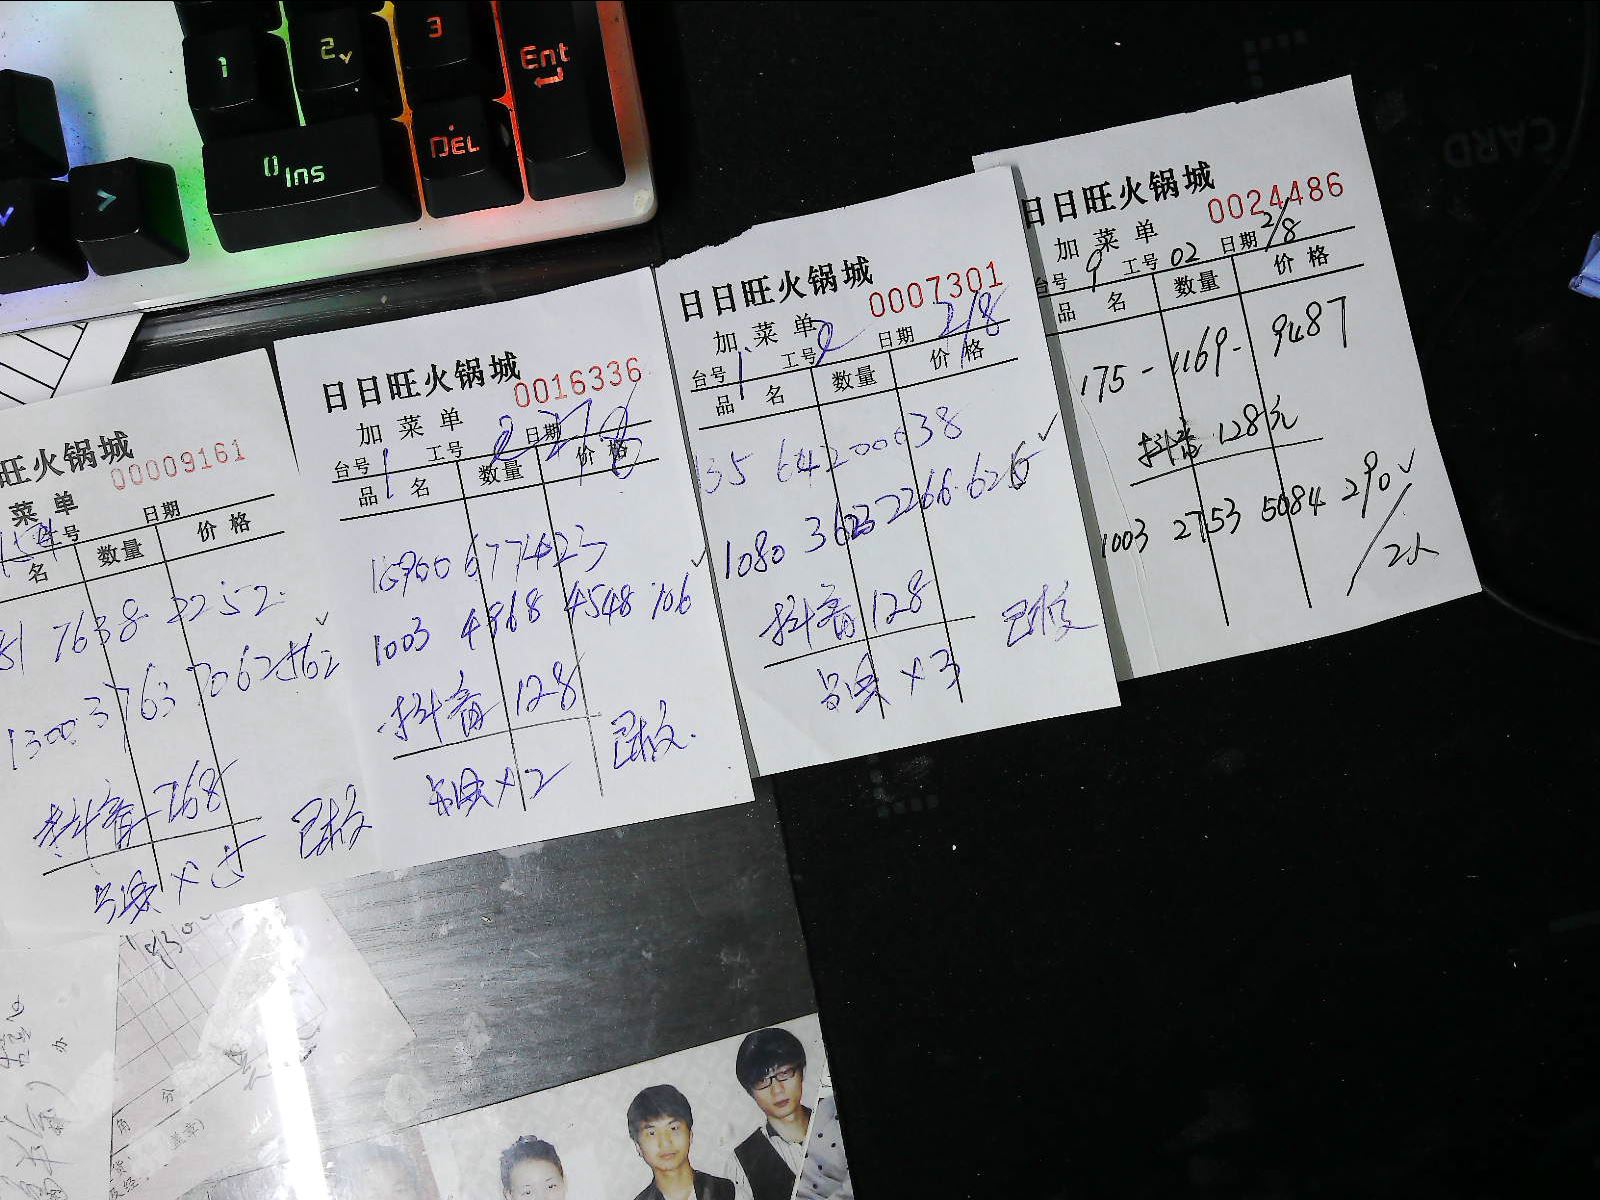 1
2
3
Ent
0 Ins
DEL
CARD
旺火锅城
00009161
菜单
号 日期
名 数量 价格
81 7638 2252
1300 3763 7062562
抖音 768
×5 已核
日日旺火锅城
0016336
加菜单
台号 1 工号 2 日期
品名 数量 价格
1003 4868 4548 706
抖音 128
×2 已核
日日旺火锅城
0007301
加菜单
台号 1 工号 2 日期 2/8
品名 数量 价格
135 64200038
1080 3623 7266 626
抖音 128
×3 已核
日日旺火锅城
0024486
加菜单
台号 9 工号 02 日期 2/8
品名 数量 价格
175-1169-9487
抖音 128元
1003 2753 5084 290
2人
角 分
盖章)
办